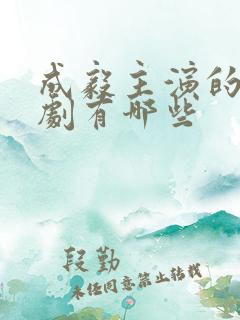 成毅主演的
劇有哪些
段勤
未经同意禁止转载